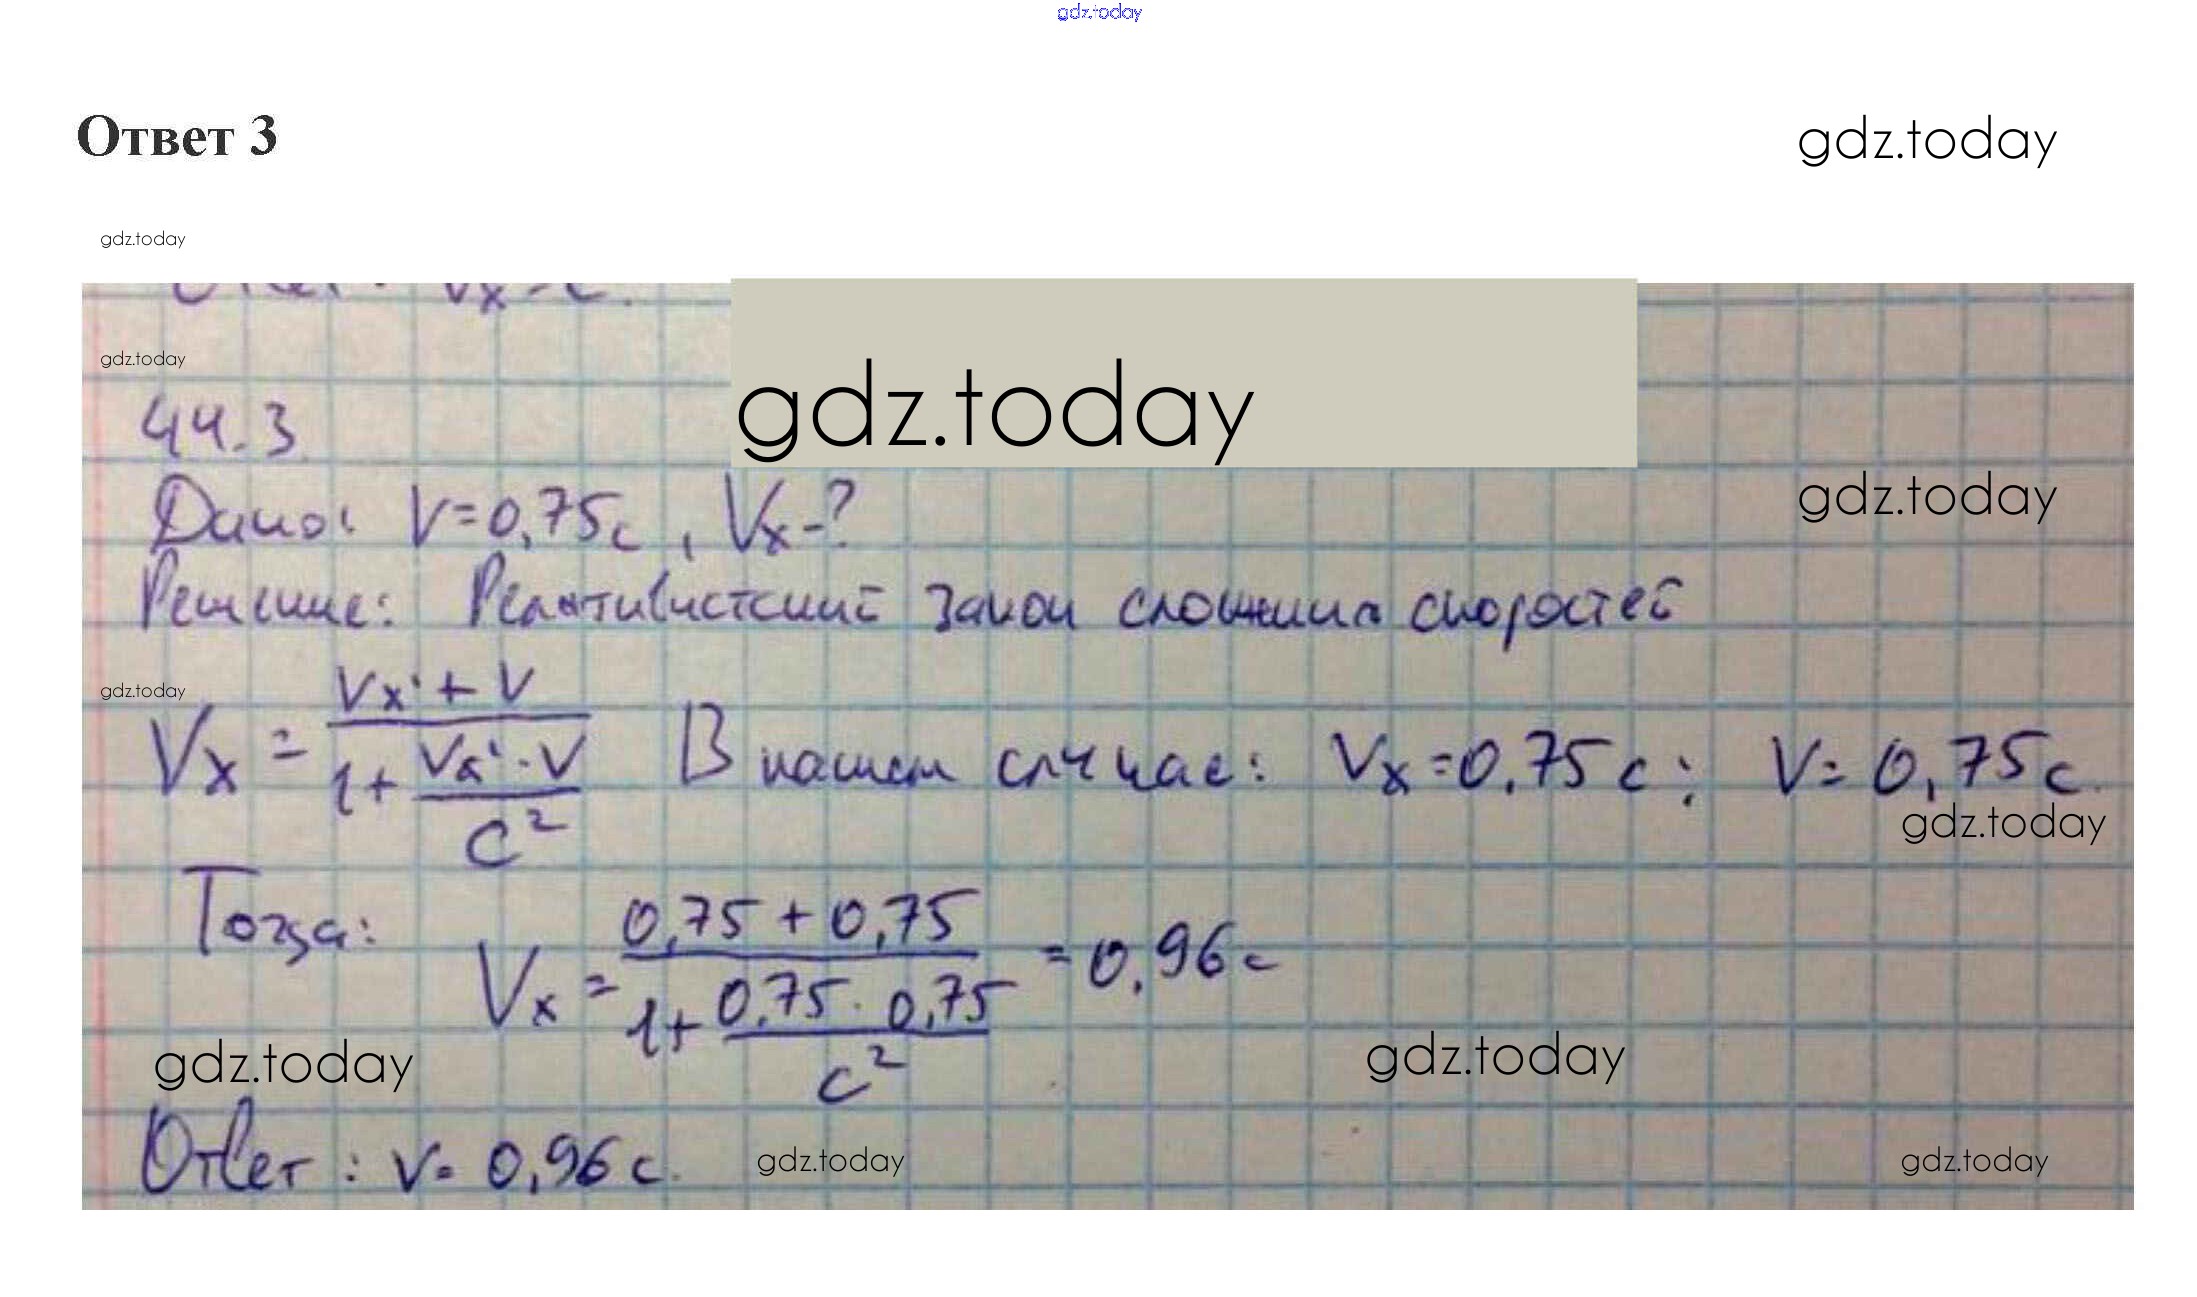 gdz.today
Ответ 3 gdz.today
gdz.today
Vx = c.
gdz.today
gdz.today
44.3
Дано: V=0,75c, Vx-? gdz.today
Решение: Релятивистский закон сложения скоростей
gdz.today
Vx = (Vx' + V) / (1 + (Vx' · V) / c²) В нашем случае: Vx=0,75c; V=0,75c.
gdz.today
Тогда: Vx = (0,75 + 0,75) / (1 + (0,75 · 0,75) / c²) = 0,96c
gdz.today gdz.today
Ответ: V= 0,96c. gdz.today gdz.today